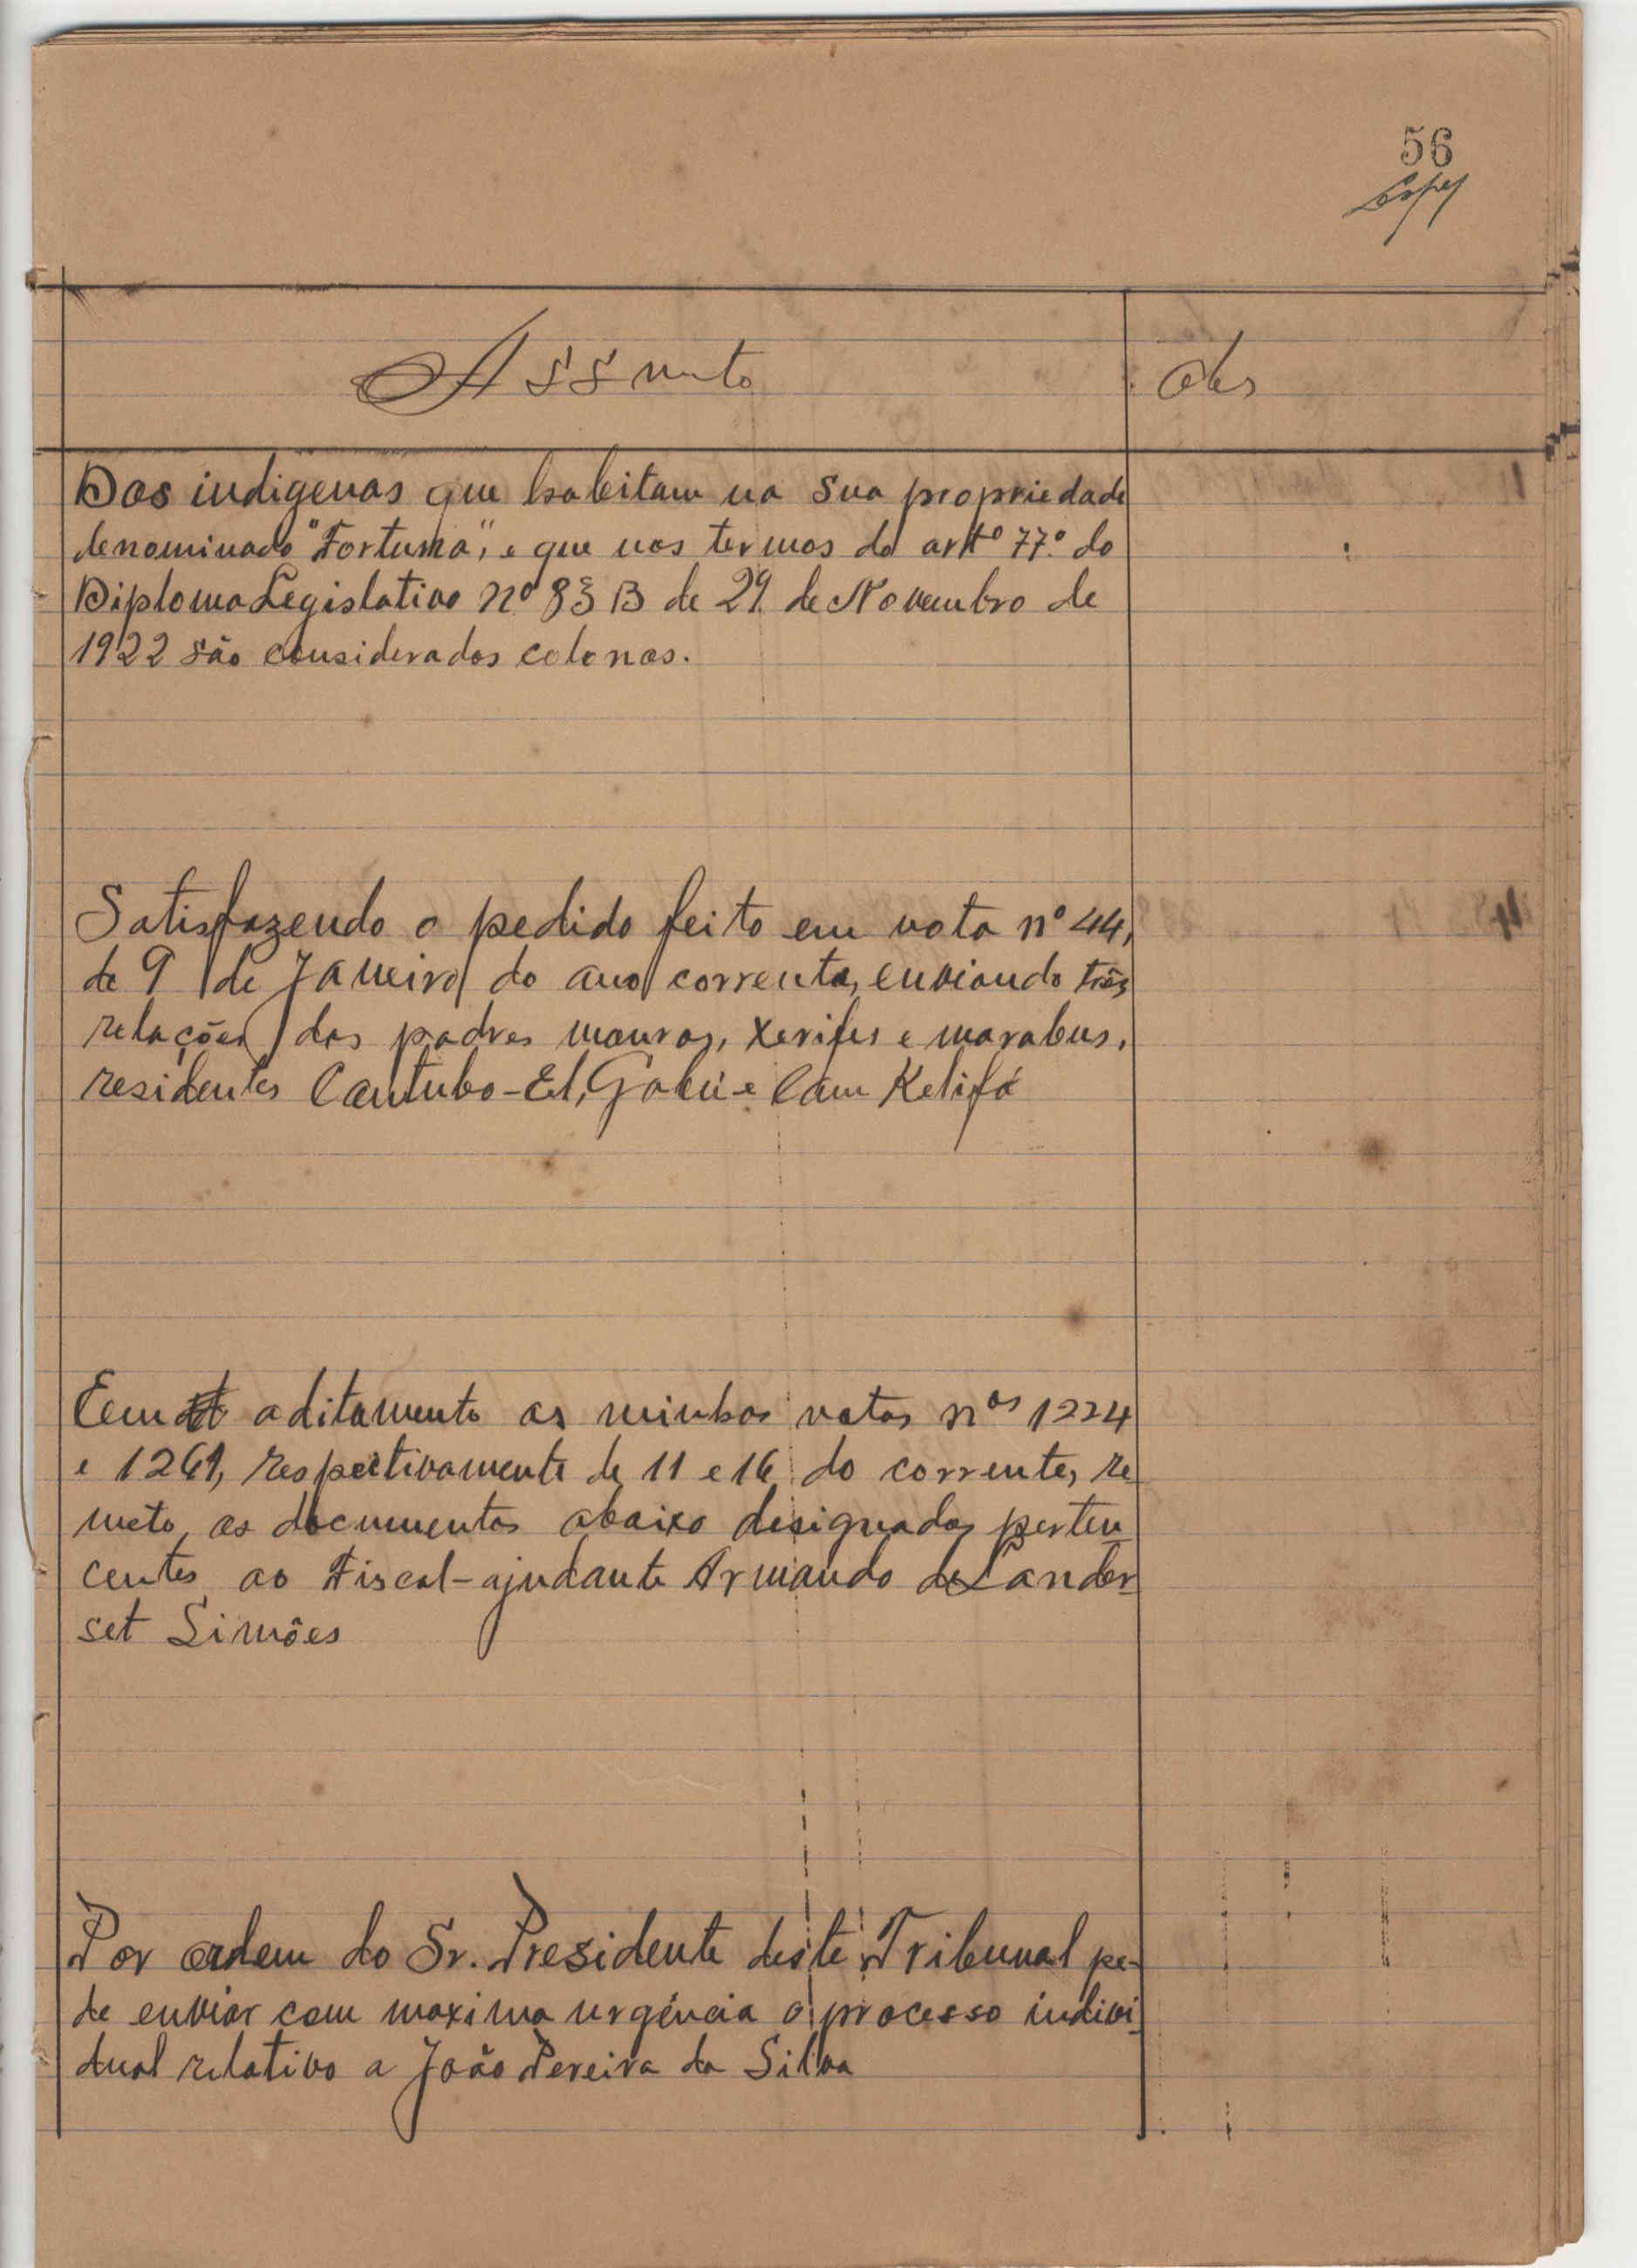 56
Assunto
Obs
Dos indigenas que habitam na sua propriedade
denominado "Fortuna", e que nos termos do artº 77º do
Diploma Legislativo nº 83 B de 29 de Novembro de
1922 são considerados colonos.
Satisfazendo o pedido feito em nota nº 44,
de 9 de Janeiro do ano corrente, enviando três
relações dos padres mouros, xerifes e marabus,
residentes Cantubo-El, Gabú e Cam Kelifá
Em aditamento as minhas notas nºs 1224
e 1261, respectivamente de 11 e 16 do corrente, re
meto, os documentos abaixo designados perten
centes ao Fiscal-ajudante Armando de Lander
set Simões
Por ordem do Sr. Presidente deste Tribunal pe-
de enviar com maxima urgência o processo indivi
dual relativo a João Pereira da Silva